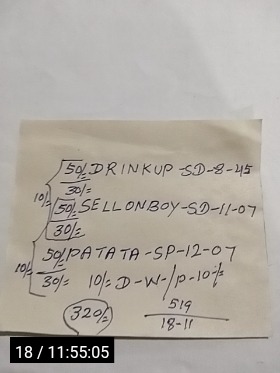 50/= DRINKUP-SD-8-45
10/= 30/=
50/= SELLONBOY-SD-11-07
30/=
50/= PATATA-SP-12-07
10/= 30/= 10/= D-W-/P-10/=
320/= 519
18-11
18 / 11:55:05